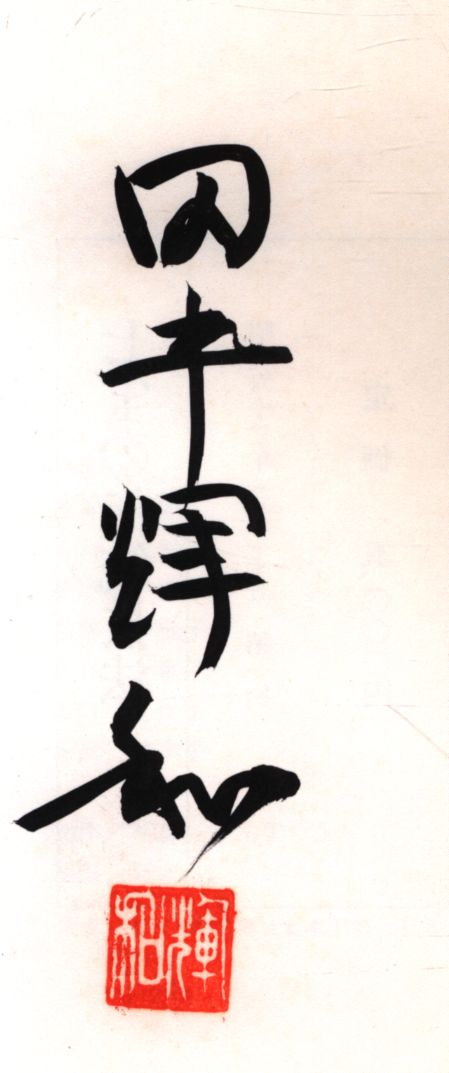 田中輝和
輝和